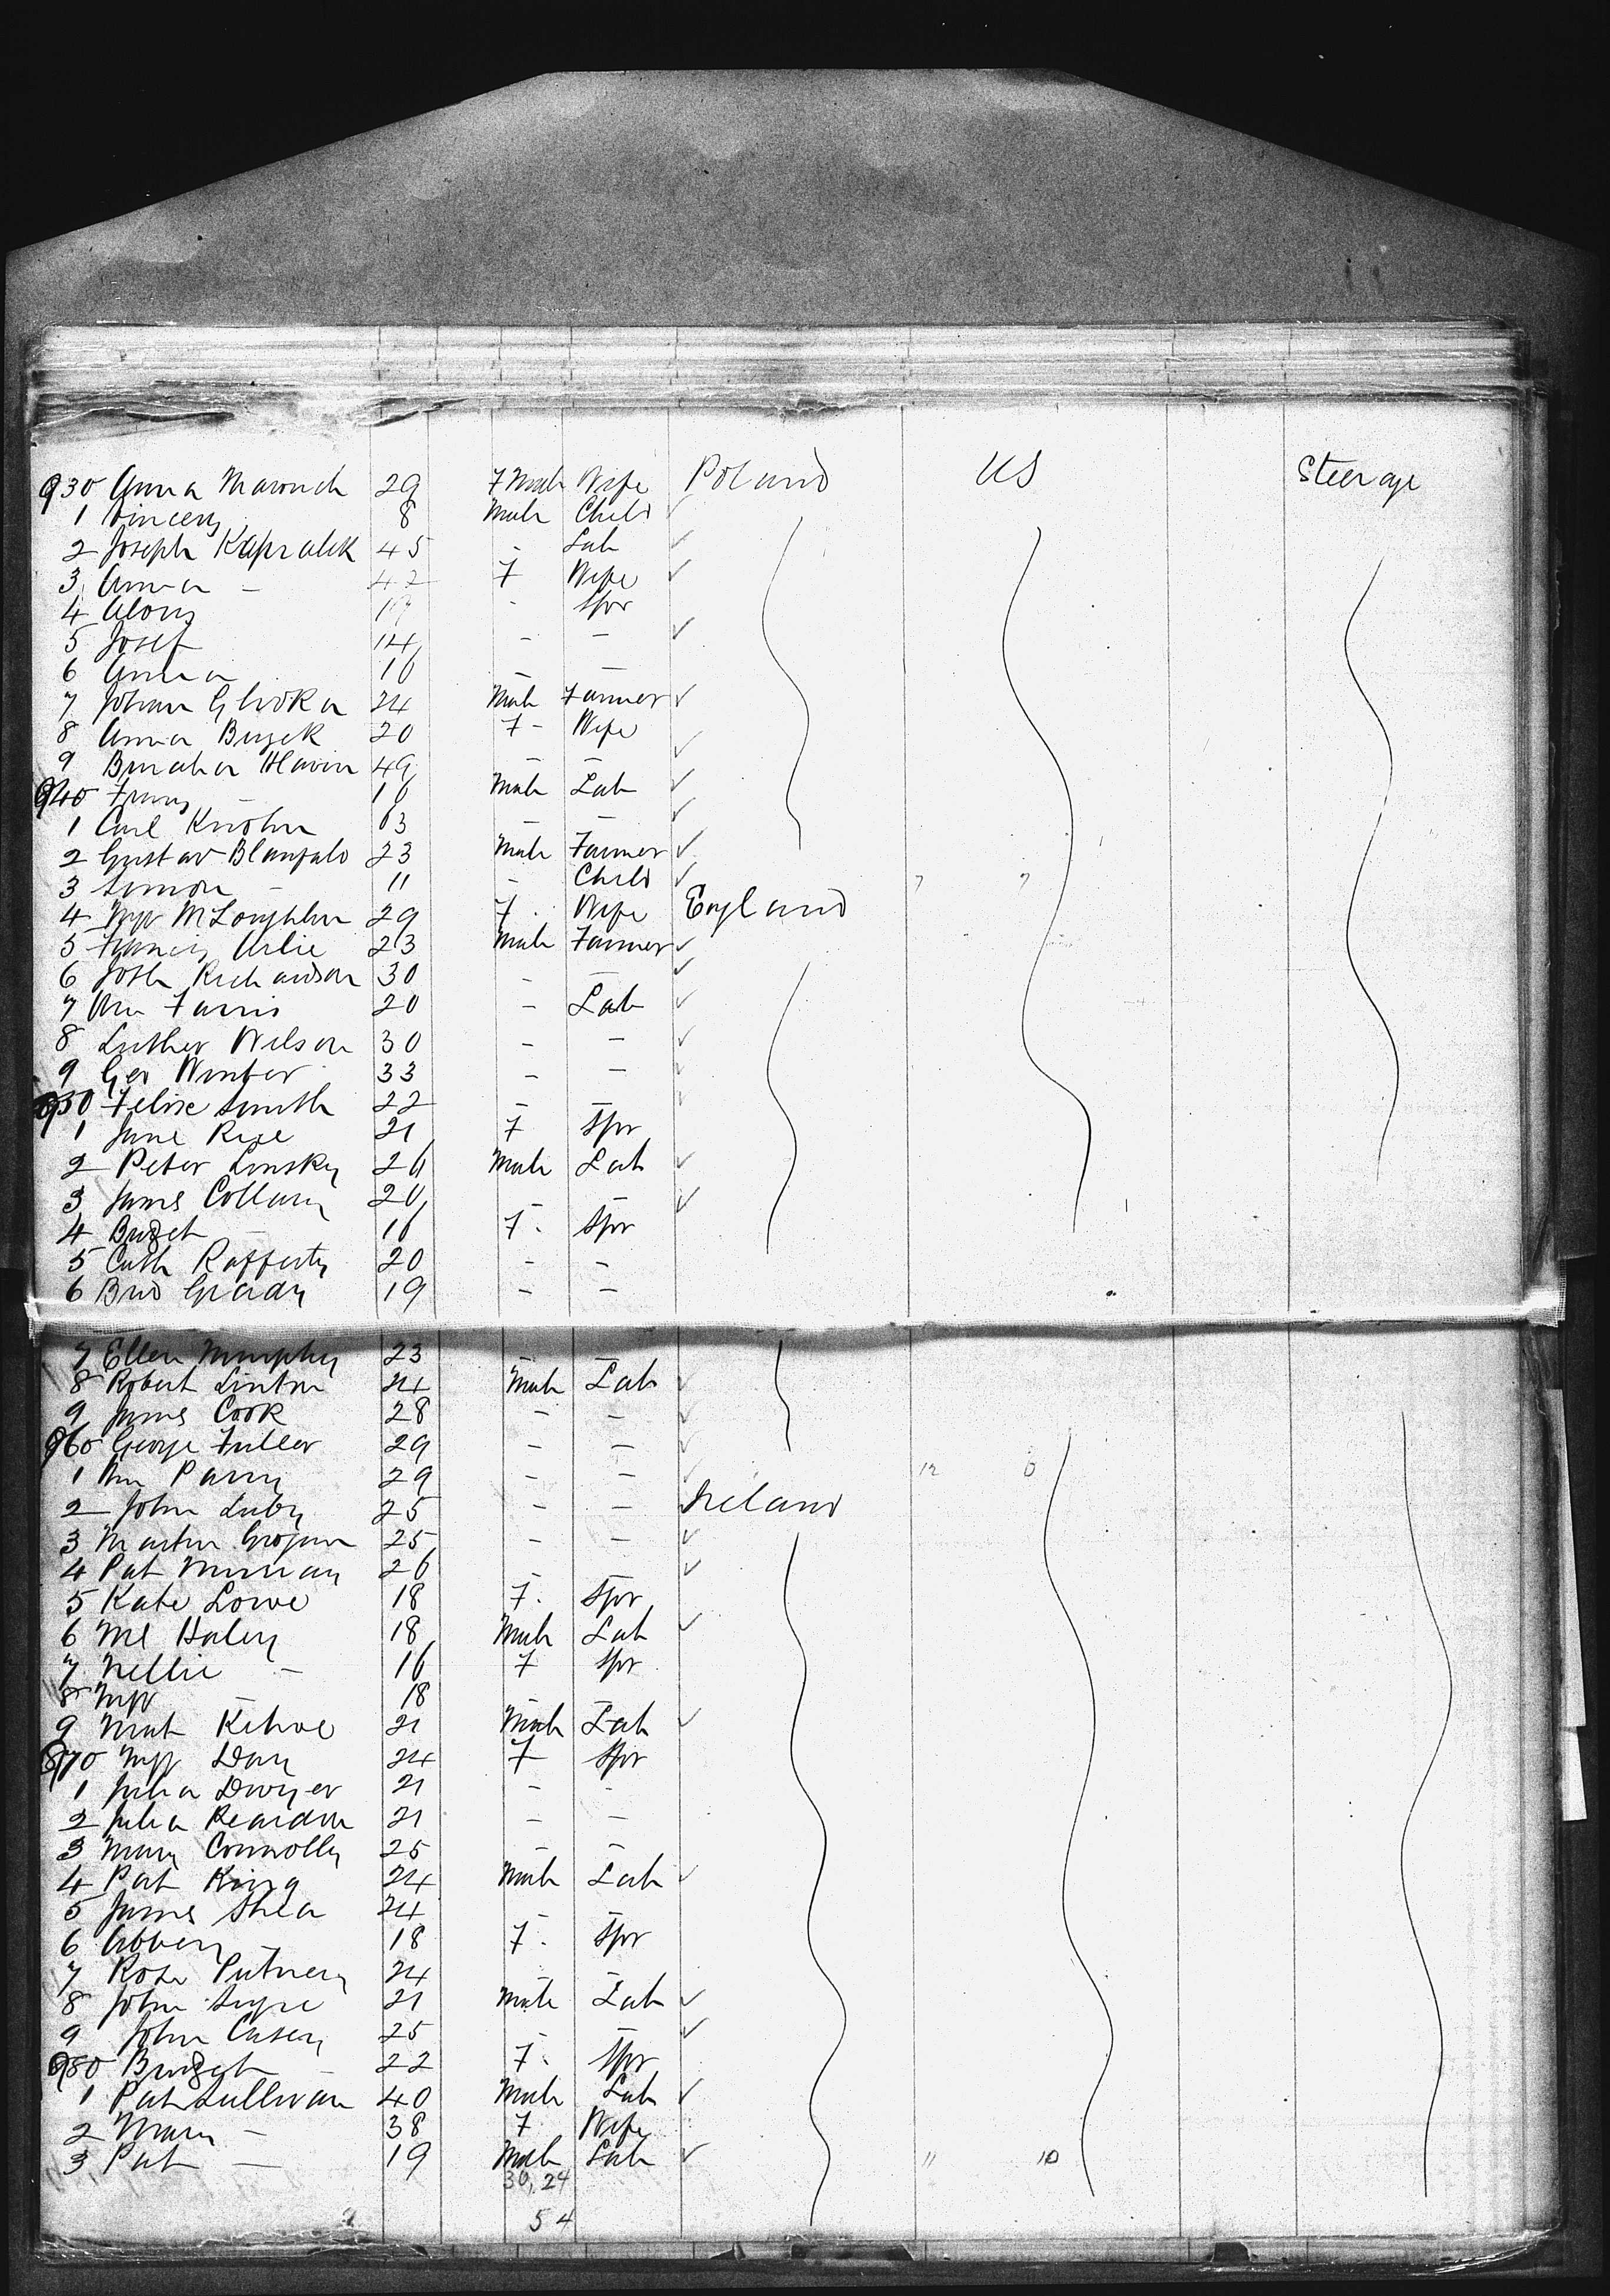 930 Anna Marouch 29 F Male Wife Poland US Steerage
1 Vincenz 8 Male Child
2 Joseph Kapralik 45 - Lab
3 Anna - 42 F Wife
4 Alois 17 - Spr
5 Josef 14 - -
6 Anna 16 - -
7 Johan Glivka 24 Male Farmer
8 Anna Buzek 20 F - Wife
9 49 - -
940 Franz - 16 Male Lab
1 Carl 63 - -
2 Gustav 23 Male Farmer
3 Simon - 11 - Child 7 7
4 Mgr McLoughlin 29 F. Wife England
5 Francis Arlie 23 Male Farmer
6 Josh Richardson 30 - -
7 Wm Farris 20 - Lab
8 Luther Wilson 30 - -
9 Geo Winter 33 - -
950 Felix Smith 22 - -
1 Jane Rice 21 F Spr
2 Peter Linsky 26 Male Lab
3 James Collary 20 - -
4 Bridget - 16 F. Spr
5 Cath Rafferty 20 - -
6 Brid Grady 19 - -
7 Ellen Murphy 23 - -
8 Robert Linton 24 Male Lab
9 James Cook 28 - -
960 George Fuller 29 - -
1 Wm Parry 29 - - 12 6
2 John Luby 25 - - Ireland
3 Martin Grogan 25 - -
4 Pat Murray 26 - -
5 Kate Lowe 18 F. Spr
6 Ml Haley 18 Male Lab
7 Nellie - 16 F Spr
8 Mgr - 18 - -
9 Mat Kehoe 21 Male Lab
970 Mgr Day 24 F Spr
1 Julia Dwyer 21 - -
2 Julia Reardon 21 - -
3 Mary Connolly 25 - -
4 Pat King 24 Male Lab
5 James Shea 24 - -
6 Abbey - 18 F. Spr
7 Rose Putney 24 - -
8 John 21 Male Lab
9 John Casey 25 - -
980 Bridget - 22 F. Spr
1 Pat Sullivan 40 Male Lab
2 Mary - 38 F Wife
3 Pat - 19 Male Lab 11 10
30, 24
54